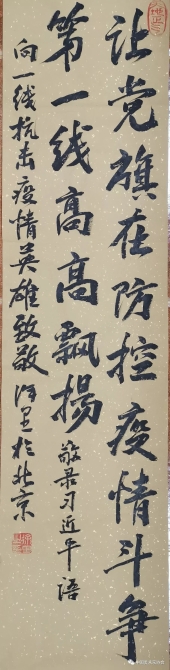 让党旗在防控疫情斗争
第一线高高飘扬
敬录习近平语
向一线抗击疫情英雄致敬
于北京